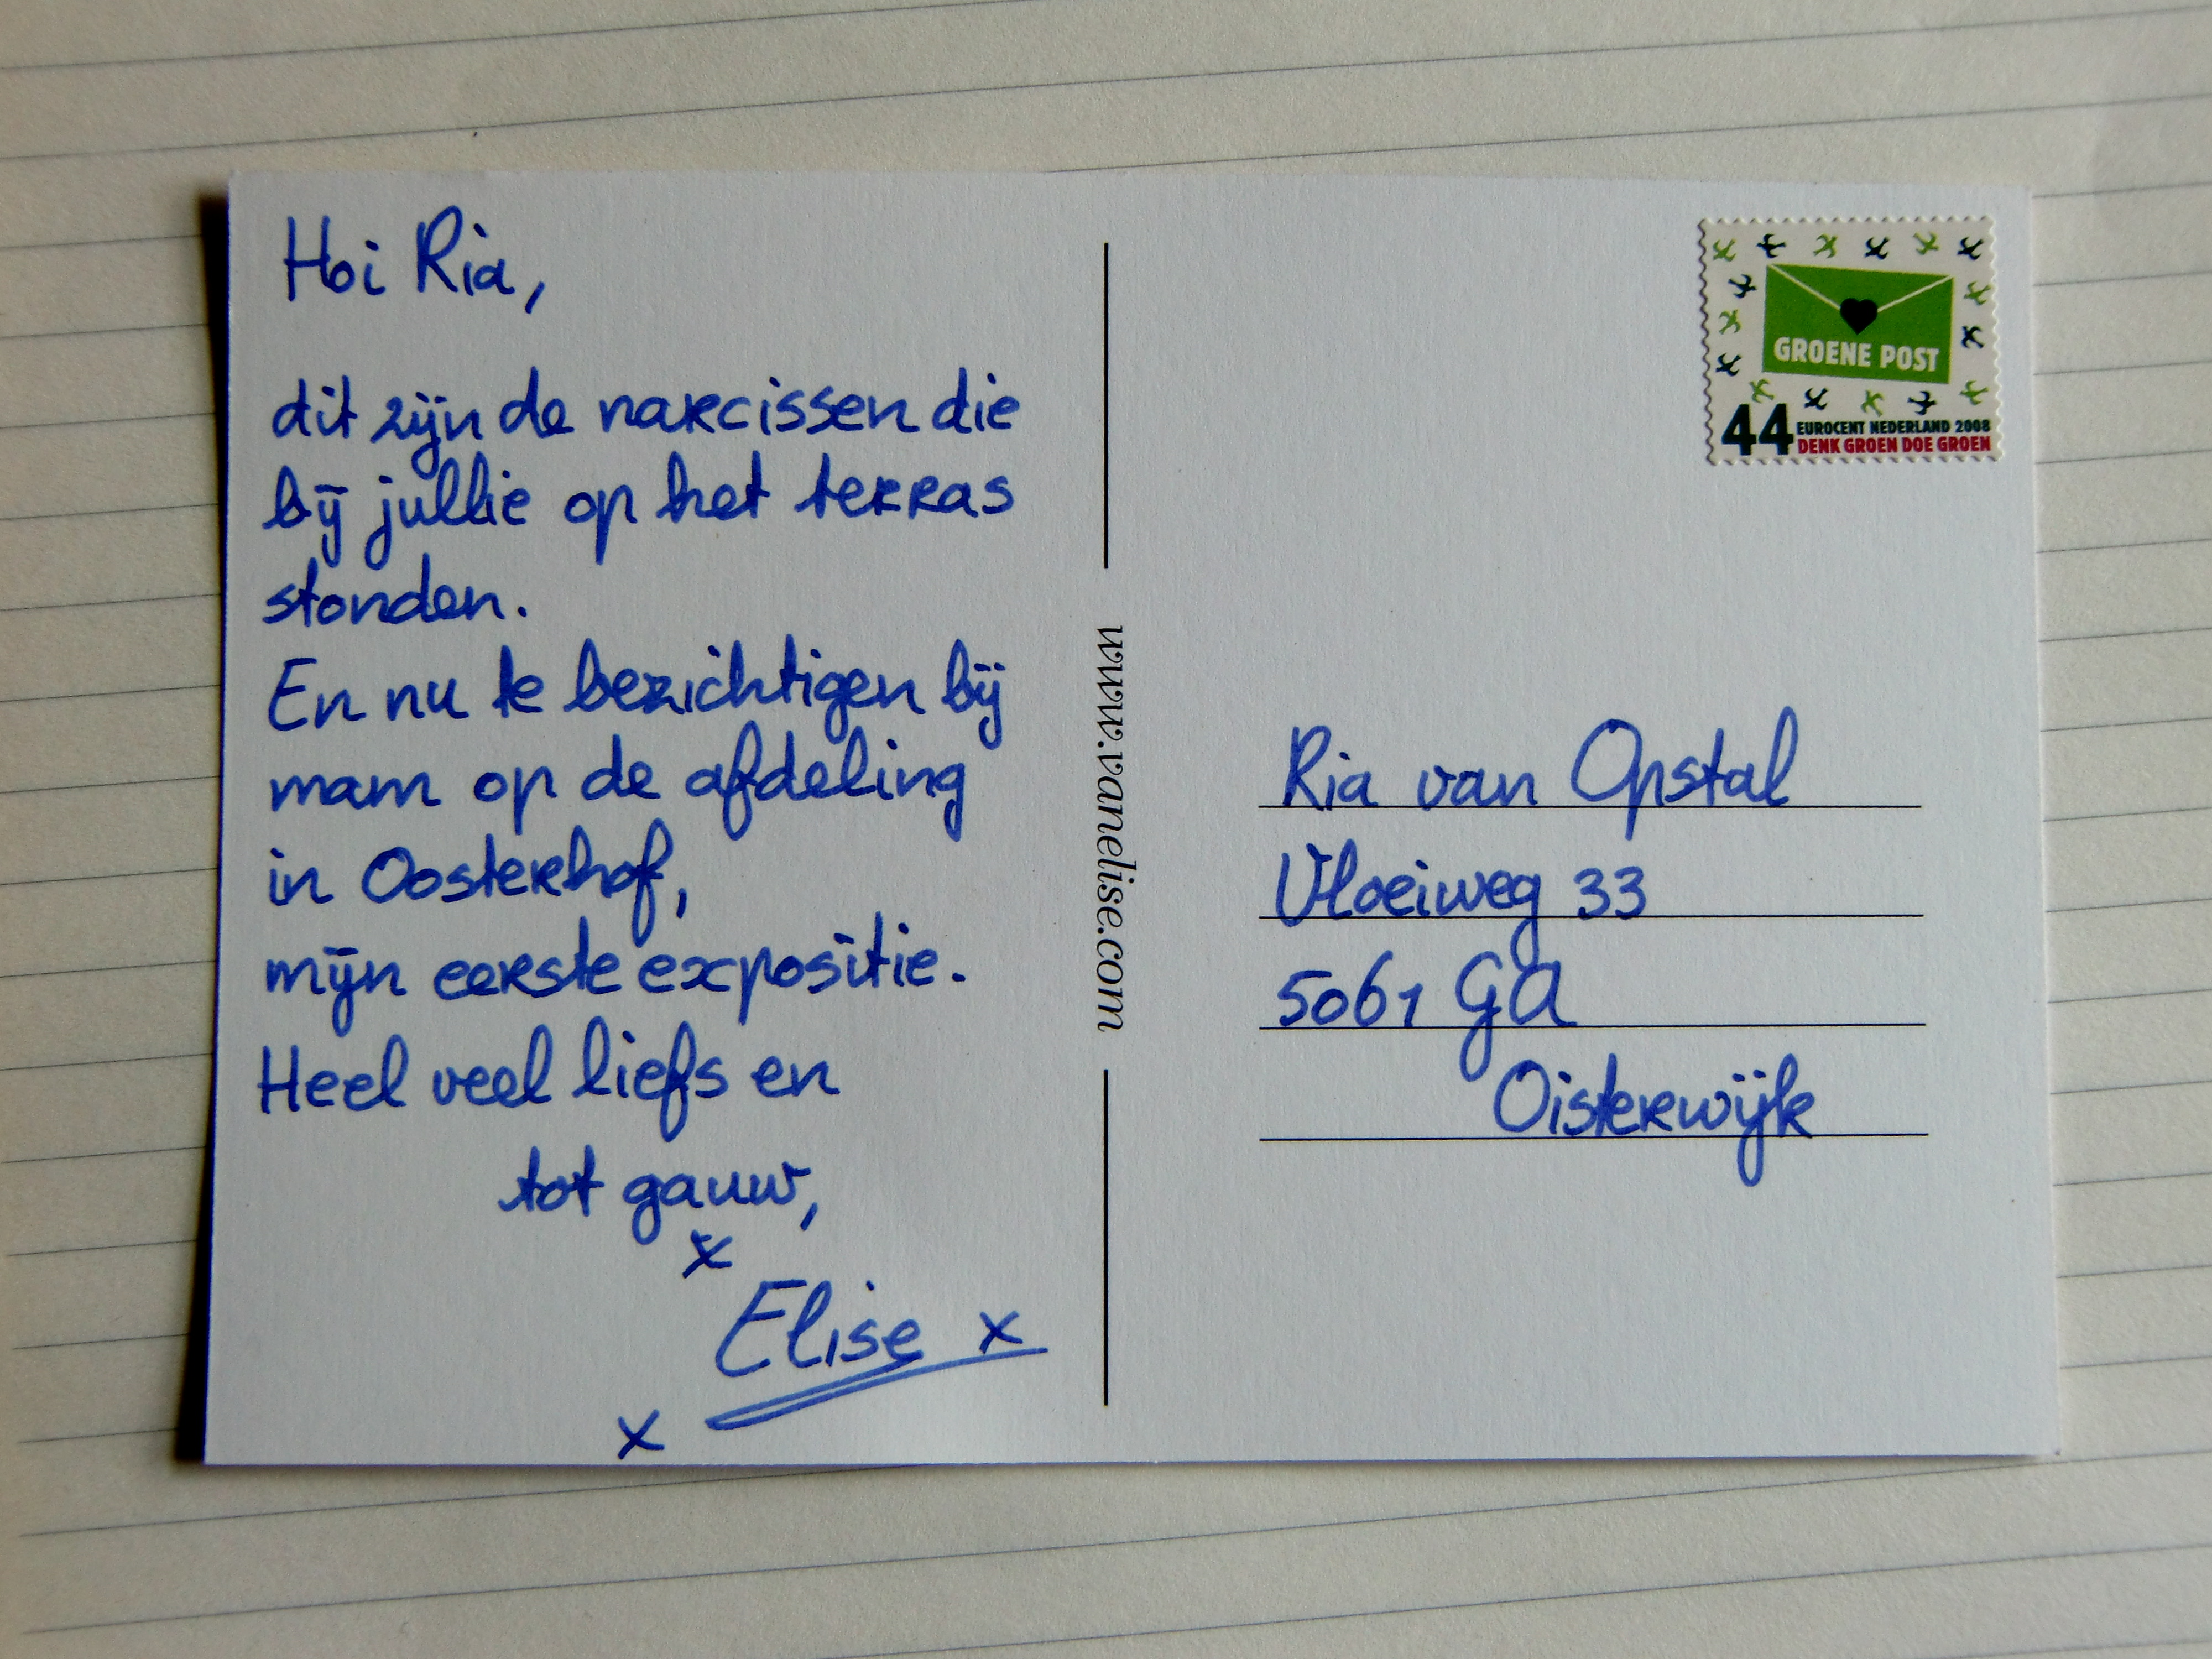 Hoi Ria,
dit zijn de narcissen die
bij jullie op het terras
stonden.
En nu te bezichtigen bij
mam op de afdeling
in Oosterhof,
mijn eerste expositie.
Heel veel liefs en
tot gauw,
x
Elise x
x
www.vanelise.com
GROENE POST
44 EUROCENT NEDERLAND 2008
DENK GROEN DOE GROEN
Ria van Opstal
Vloeiweg 33
5061 GA
Oisterwijk